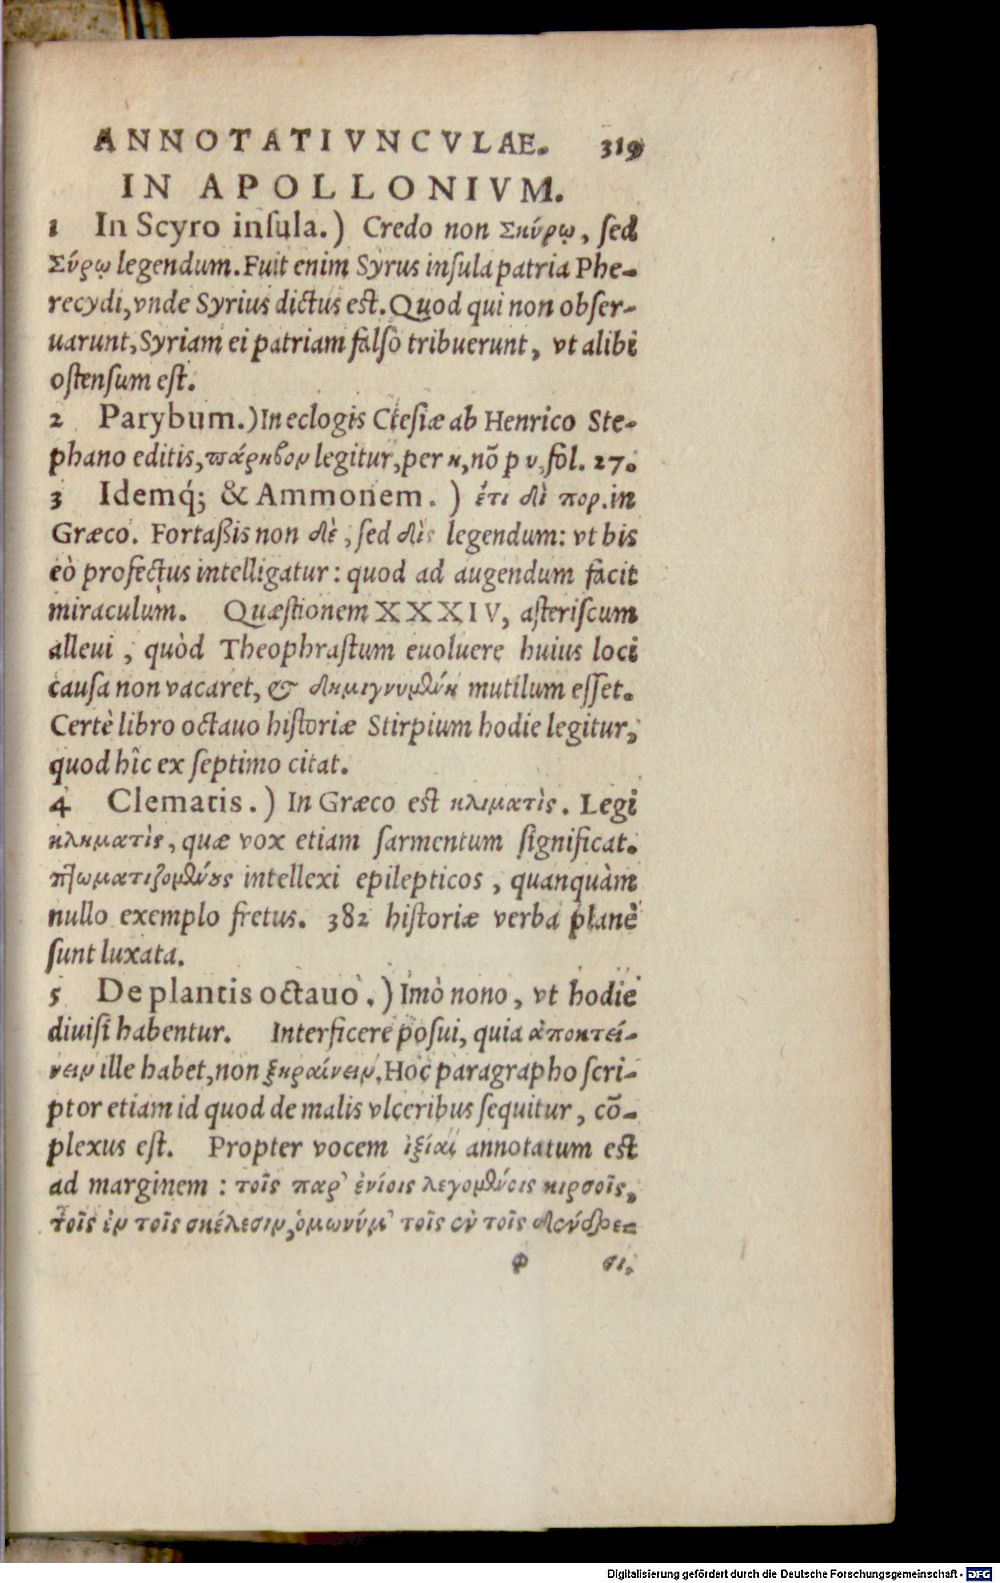 ANNOTATIVNCVLAE. 319
IN APOLLONIVM.
1 In Scyro inſula.) Credo non Σκύρῳ, ſed
Σύρῳ legendum. Fuit enim Syrus inſula patria Phe-
recydi, vnde Syrius dictus eſt. Quod qui non obſer-
uarunt, Syriam ei patriam falſò tribuerunt, vt alibi
oſtenſum eſt.
2 Parybum.) In eclogis Cteſiæ ab Henrico Ste-
phano editis, πάρηβον legitur, per η, nō p υ, fol. 27.
3 Idemq́; & Ammonem.) ἔτι δὲ πορ. in
Græco. Fortaßis non δὲ, ſed δὶς legendum: vt bis
eò profectus intelligatur: quod ad augendum facit
miraculum. Quæſtionem XXXIV, aſteriſcum
alleui, quòd Theophraſtum euoluere huius loci
cauſa non vacaret, & mutilum eſſet.
Certè libro octauo hiſtoriæ Stirpium hodie legitur,
quod hîc ex ſeptimo citat.
4 Clematis.) In Græco eſt κλιματὶς. Legi
κληματὶς, quæ vox etiam ſarmentum ſignificat.
πτωματιζομένους intellexi epilepticos, quanquàm
nullo exemplo fretus. 382 hiſtoriæ verba planè
ſunt luxata.
5 De plantis octauo.) Imò nono, vt hodie
diuiſi habentur. Interficere poſui, quia ἀποκτεί-
νειν ille habet, non ξηραίνειν. Hoc paragrapho ſcri-
ptor etiam id quod de malis vlceribus ſequitur, cō-
plexus eſt. Propter vocem ἰξίαι annotatum eſt
ad marginem: τοῖς παρ' ἐνίοις λεγομένοις κιρσοῖς,
τοῖς ἐν τοῖς σκέλεσιν, ὁμωνύμ' τοῖς ἐν τοῖς δένδρε-
φ σι,
Digitalisierung gefördert durch die Deutsche Forschungsgemeinschaft - DFG